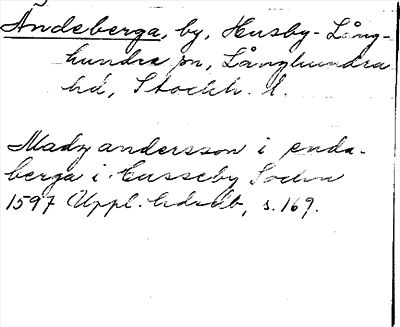 Ändeberga, by, Husby-Lång-
hundra sn, Långhundra
hd, Stockh. l.
Madz andersson i enda-
berga i Husseby Sochn
1597 Uppl. hdr db, s. 169.